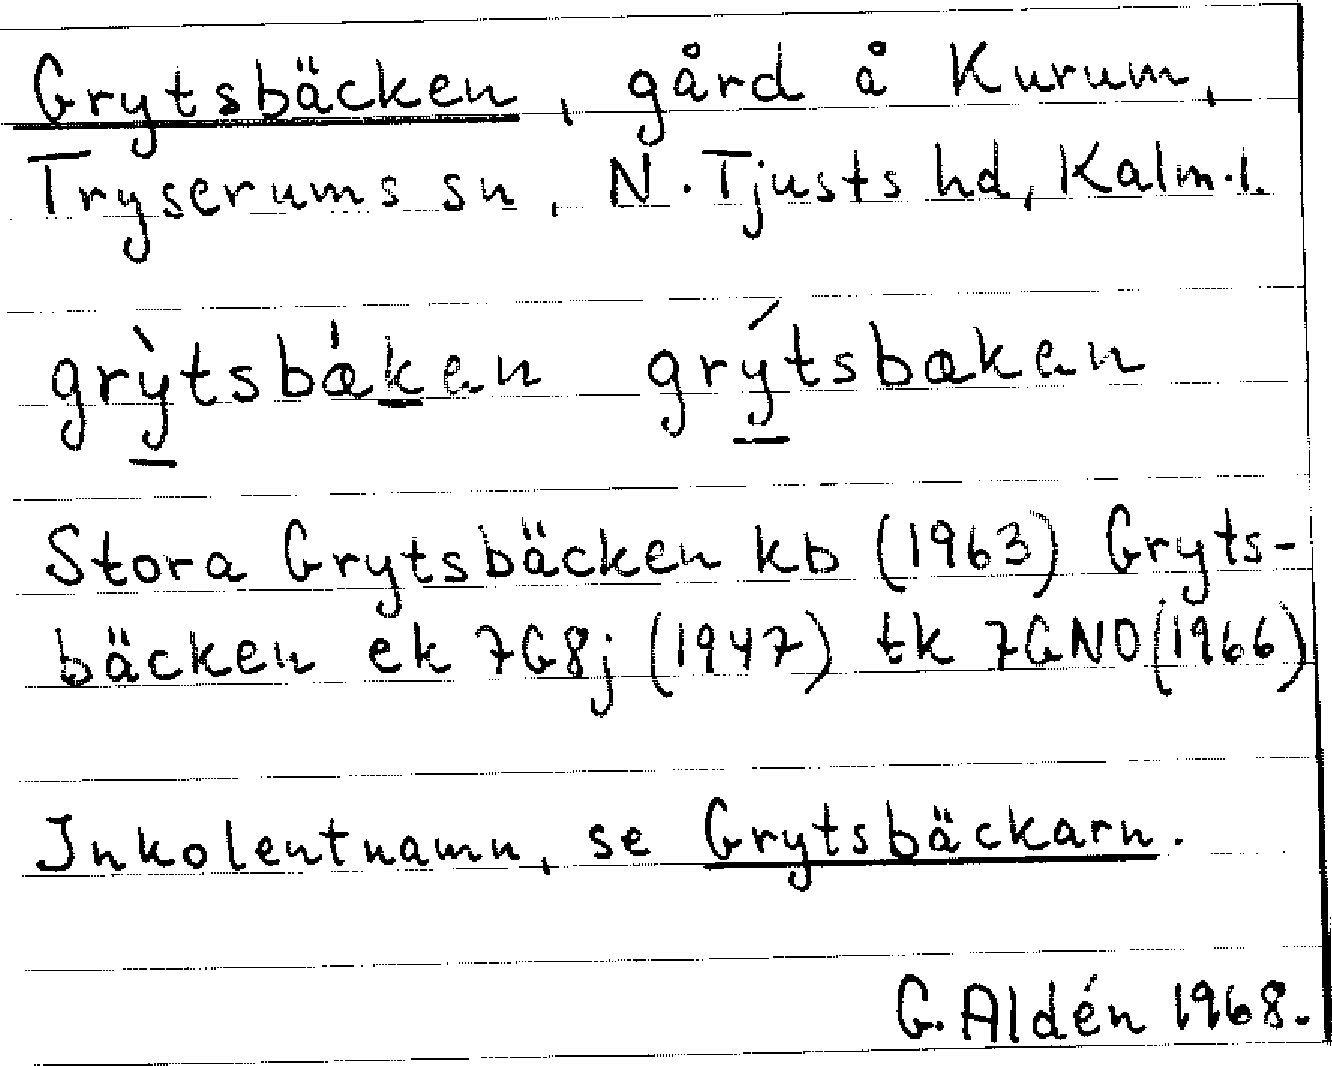 Grytsbäcken, gård å Kurum,
Tryserums sn, N. Tjusts hd, Kalm.l.
grỳtsbæ̍ken grýtsbæken
Stora Grytsbäcken kb (1963) Gryts-
bäcken ek 7G8j (1947) tk 7GNO (1966)
Inkolentnamn, se Grytsbäckarn.
G. Aldén 1968.